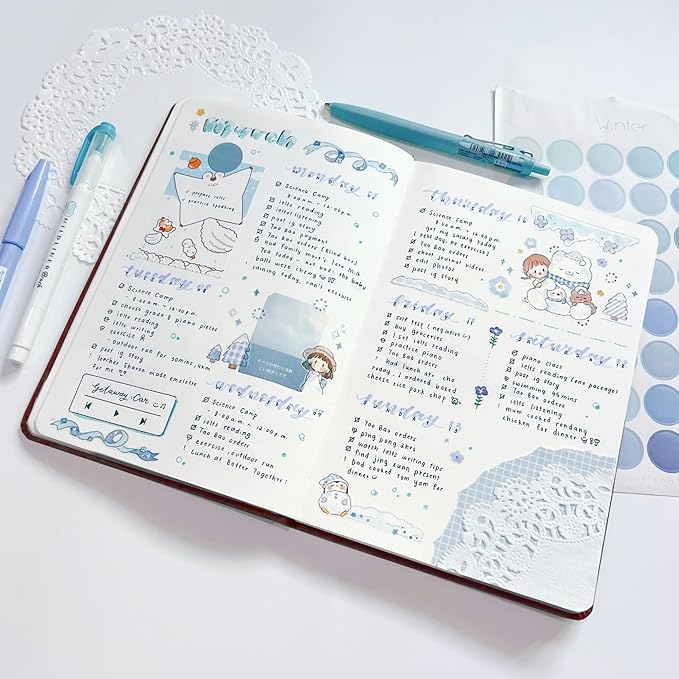 march
✓ prepare ielts
✓ practice speaking
monday 07
Science Camp
8.00am - 12.00p.m.
ielts reading
ielts listening
post ig story
Tao Bao payment
Tao Bao orders
! God family mom's
today
balls were chewy
raining today, can't exercise
tuesday 08
Science Camp
- 8.00am - 12.00p.m.
choose grade 8 piano pieces
ielts reading
ielts writing
exercise
outdoor run for 30mins, 4km
post ig story
! Teacher Sharon made omelette
for me
Getaway Car
wednesday 09
Science Camp
- 8.00am - 12.00p.m.
ielts reading
Tao Bao orders
exercise, outdoor run
! Lunch at Better Together!
thursday 10
Science Camp
8.00am - 12.00p.m.
! got my salary today
( rest day, no exercise )
Tao Bao orders
edit journal videos
edit photos
post ig story
friday 11
self test ( negative )
buy groceries
1 set ielts reading
practice piano
Tao Bao orders
had lunch at cho
today, I ordered baked
cheese rice pork chop
saturday 12
piano class
ielts reading (one passage)
post ig story
swimming 45mins
Tao Bao orders
ielts listening
mum cooked rendang
chicken for dinner
sunday 13
Tao Bao orders
ping pong 2hrs
watch ielts writing tips
find jing xuan present
! Dad cooked tom yam for
dinner
Winter
MILDLINER